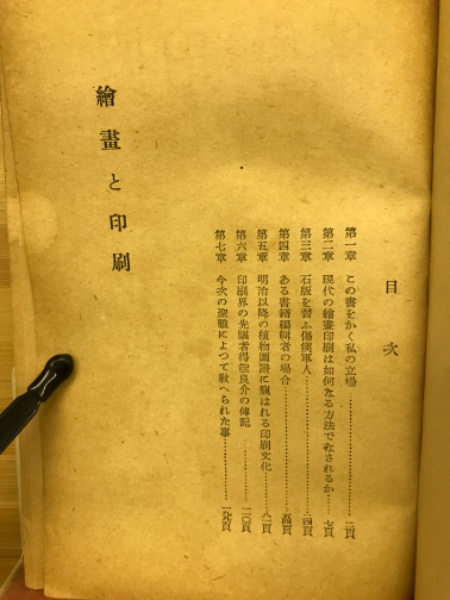 目次
第一章 この書をかく私の立場……………………二頁
第二章 現代の繪畫印刷は如何なる方法でなされるか……七頁
第三章 石版を習ふ傷痍軍人……………………二四頁
第四章 ある書籍編輯者の場合……………………
第五章 明治以降の植物圖譜に窺はれる印刷文化……………八一頁
第六章 印刷界の先驅者得能良介の傳記……………一一〇頁
第七章 今次の聖戰によつて敎へられた事……………
繪畫と印刷